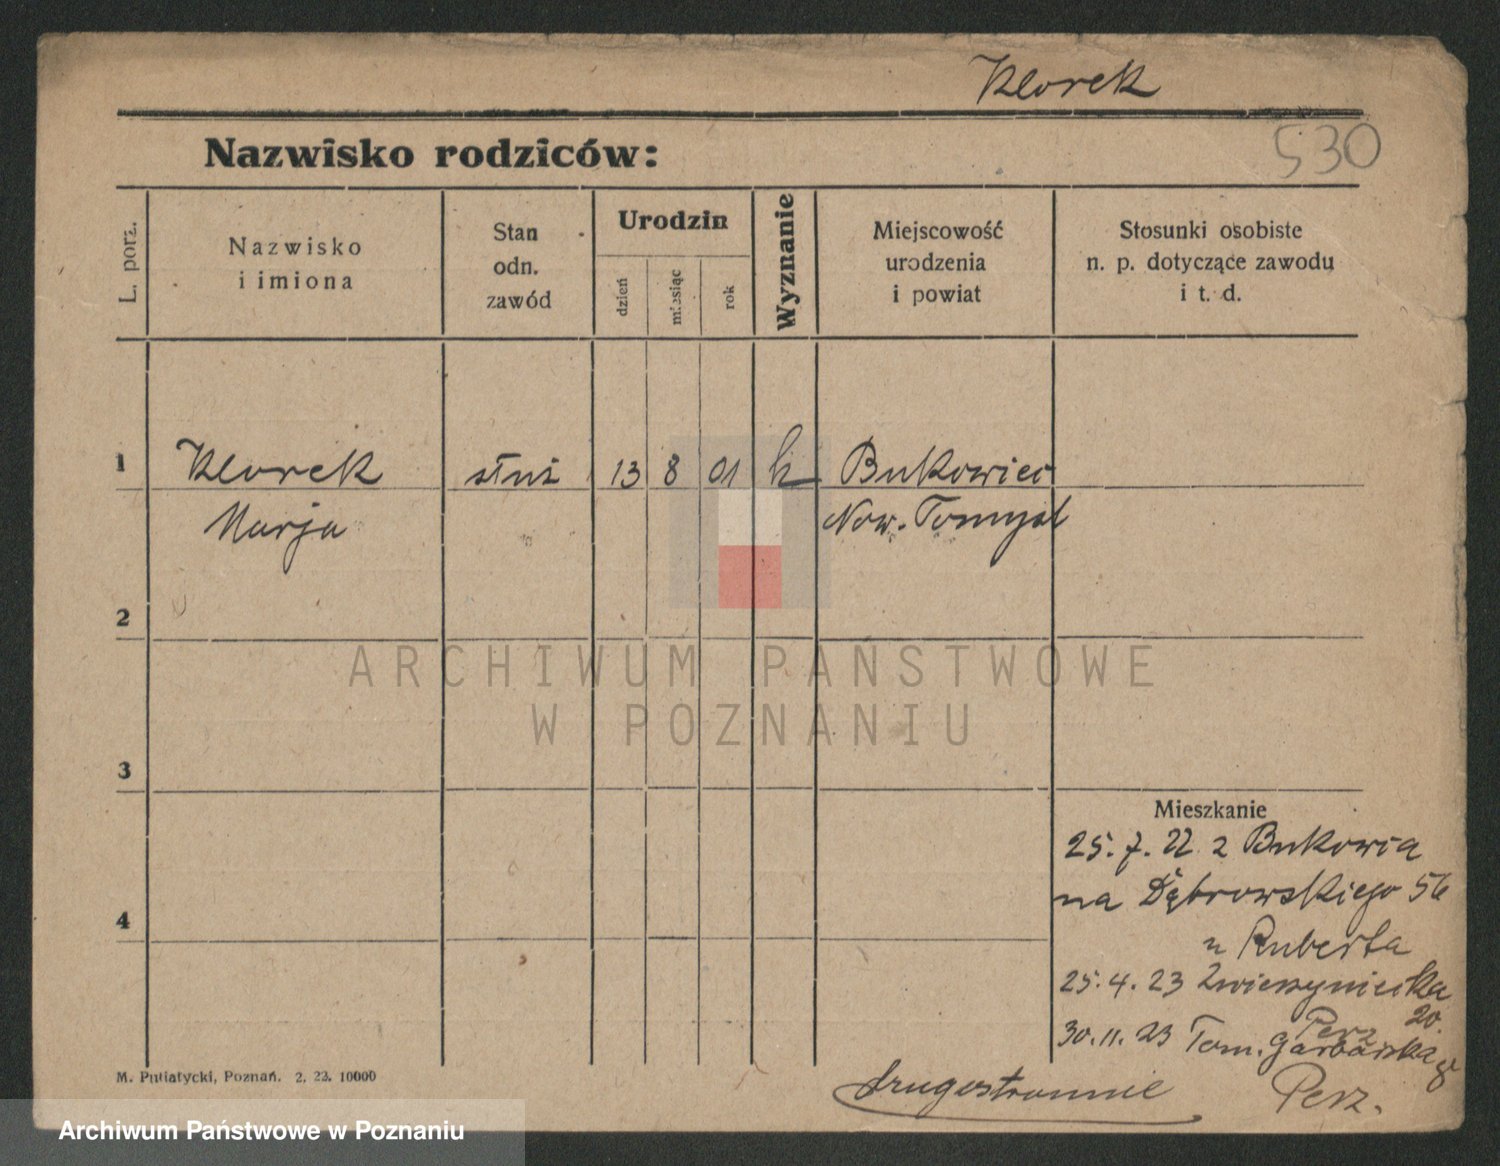 Klorek
530
Nazwisko rodziców:
L. porz.
Nazwisko
i imiona
Stan
odn.
zawód
Urodzin
dzień
miesiąc
rok
Wyznanie
Miejscowość
urodzenia
i powiat
Stosunki osobiste
n. p. dotyczące zawodu
i t. d.
1 Klorek służ 13 8 01 k Bukowiec
Marja Now. Tomyśl
2
ARCHIWUM PAŃSTWOWE
W POZNANIU
3
Mieszkanie
25. 7. 22 z Bukowca
na Dąbrowskiego 56
4
u Ruberta
25. 4. 23 Zwierzyniecka
20.
Perz
30. 11. 23 Tom. Garbarska
M. Putiatycki, Poznań. 2. 22. 10000
drugostronnie
Perz.
Archiwum Państwowe w Poznaniu